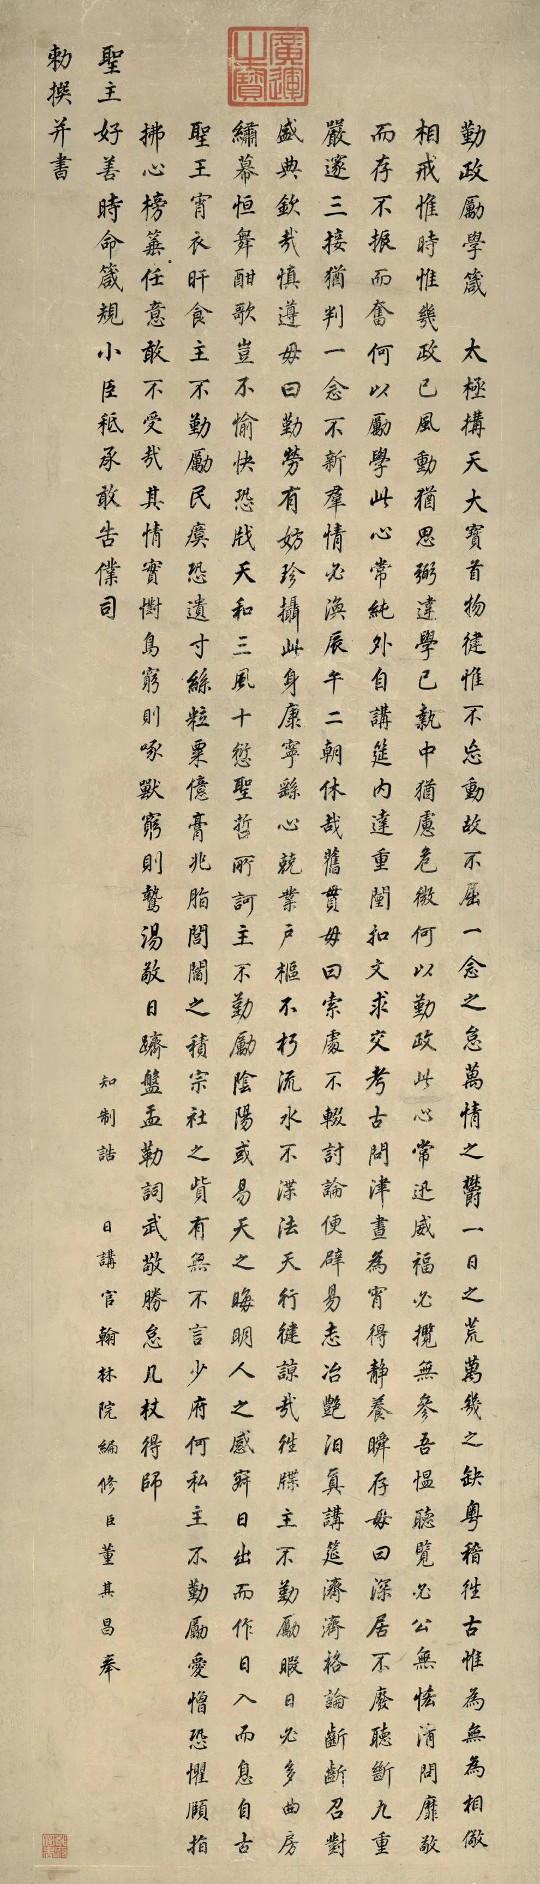 勤政勵學箴　太極構天大寶首物健惟不忘動故不屈一念之怠萬情之欝一日之荒萬幾之缺粵稽徃古惟為無為相儆
相戒惟時惟幾政已風動猶思弼違學已執中猶慮危微何以勤政此心常迅威福必攬無參吾愠聽覽必公無恡清問靡敢
而存不振而奮何以勵學此心常純外自講筵內達重闈扣文求交考古問津晝為宵得靜養瞬存毋曰深居不廢聽斷九重
嚴邃三接猶判一念不新羣情必渙辰午二朝休哉舊貫毋曰索處不輟討論便辟易志冶艷汩真講筵濟濟袼論齗齗召對
盛典欽哉慎遵毋曰勤勞有妨珍攝此身康寧繇心兢業戶樞不朽流水不渫法天行健諒哉徃牒主不勤勵暇日必多曲房
繡幕恒舞酣歌豈不愉快恐戕天和三風十愆聖哲所訶主不勤勵陰陽或易天之晦明人之感寤日出而作日入而息自古
聖王宵衣旰食主不勤勵民瘼恐遺寸絲粒粟億膏兆脂閭閻之積宗社之貲有無不言少府何私主不勤勵愛憎恐懼頤指
拂心榜箠任意敢不受哉其情實懟鳥窮則啄獸窮則鷙湯敬日躋盤盂勒詞武敬勝怠几杖得師
聖主好善時命箴規小臣秪承敢告僕司
知制誥　日講官翰林院編修臣董其昌奉
勑撰并書
廣運之寶